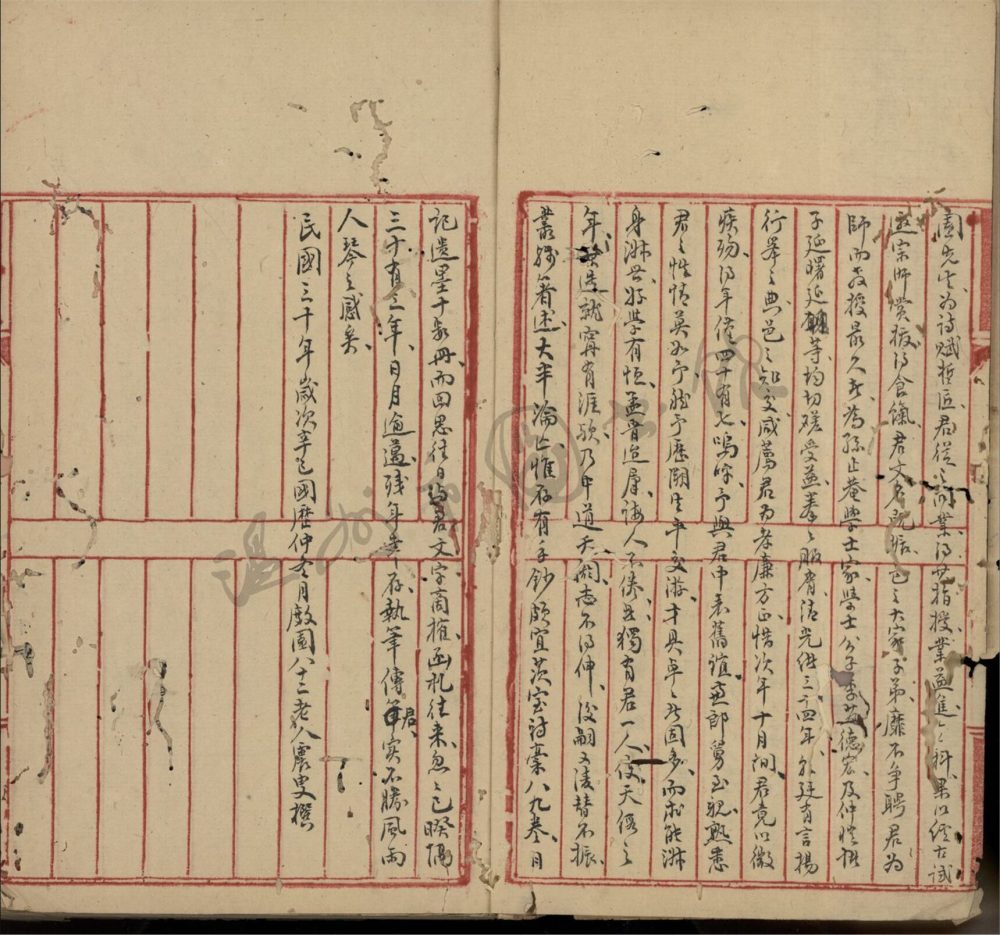 園先生為詩賦哲匠君從之問業得其指授業益進之科果以經古試
宗師赏拔得食餼君文名既振邑之大家子弟靡不争聘君為
師而教授最久者為孫止菴學士家學士公子季芃德宏及仲彤
子延曙延等均切磋受益拳拳服膺清光緒三十四年外廷有言揚
行舉之典邑之知交咸薦君為孝廉方正惜次年十月間君竟以微
疾殉得年僅四十有七嗚呼予與君中表舊誼郎舅至親熟悉
君之性情莫如予然予歷閱生平交游才具卓卓者固多而求能淋
身淋世好學有恒孟晋逭羣誨人不倦者獨有君一人使天假之
年其造就寗有涯歟乃中道夭閼志不得伸後嗣又凌替不振
叢殘著述大半淪亡惟存有手鈔頗宜茨室詩稾八九卷月
記遺墨十數冊而回思往日與君文字商摧函札往来忽忽已暌隔
三十有三年日月逾邁殘年幸存執筆傳君實不勝風雨
人琴之感矣
民國三十年歲次辛巳國歷仲冬月廄園八十二老人震叟撰